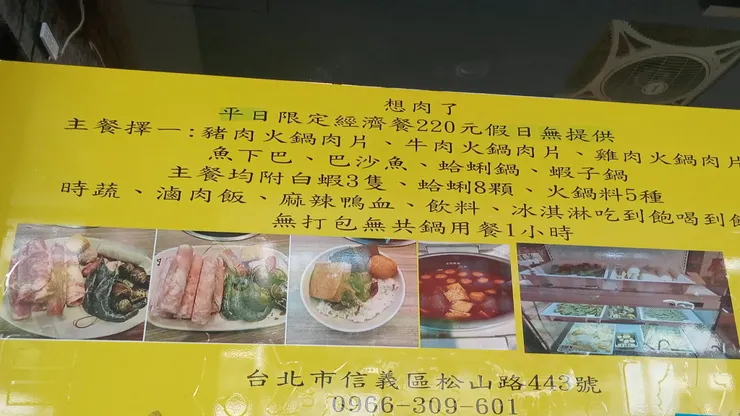 想肉了
平日限定經濟餐220元假日無提供
主餐擇一:豬肉火鍋肉片、牛肉火鍋肉片、雞肉火鍋肉片
魚下巴、巴沙魚、蛤蜊鍋、蝦子鍋
主餐均附白蝦3隻、蛤蜊8顆、火鍋料5種
時蔬、滷肉飯、麻辣鴨血、飲料、冰淇淋吃到飽喝到飽
無打包無共鍋用餐1小時
台北市信義區松山路443號
0966-309-601